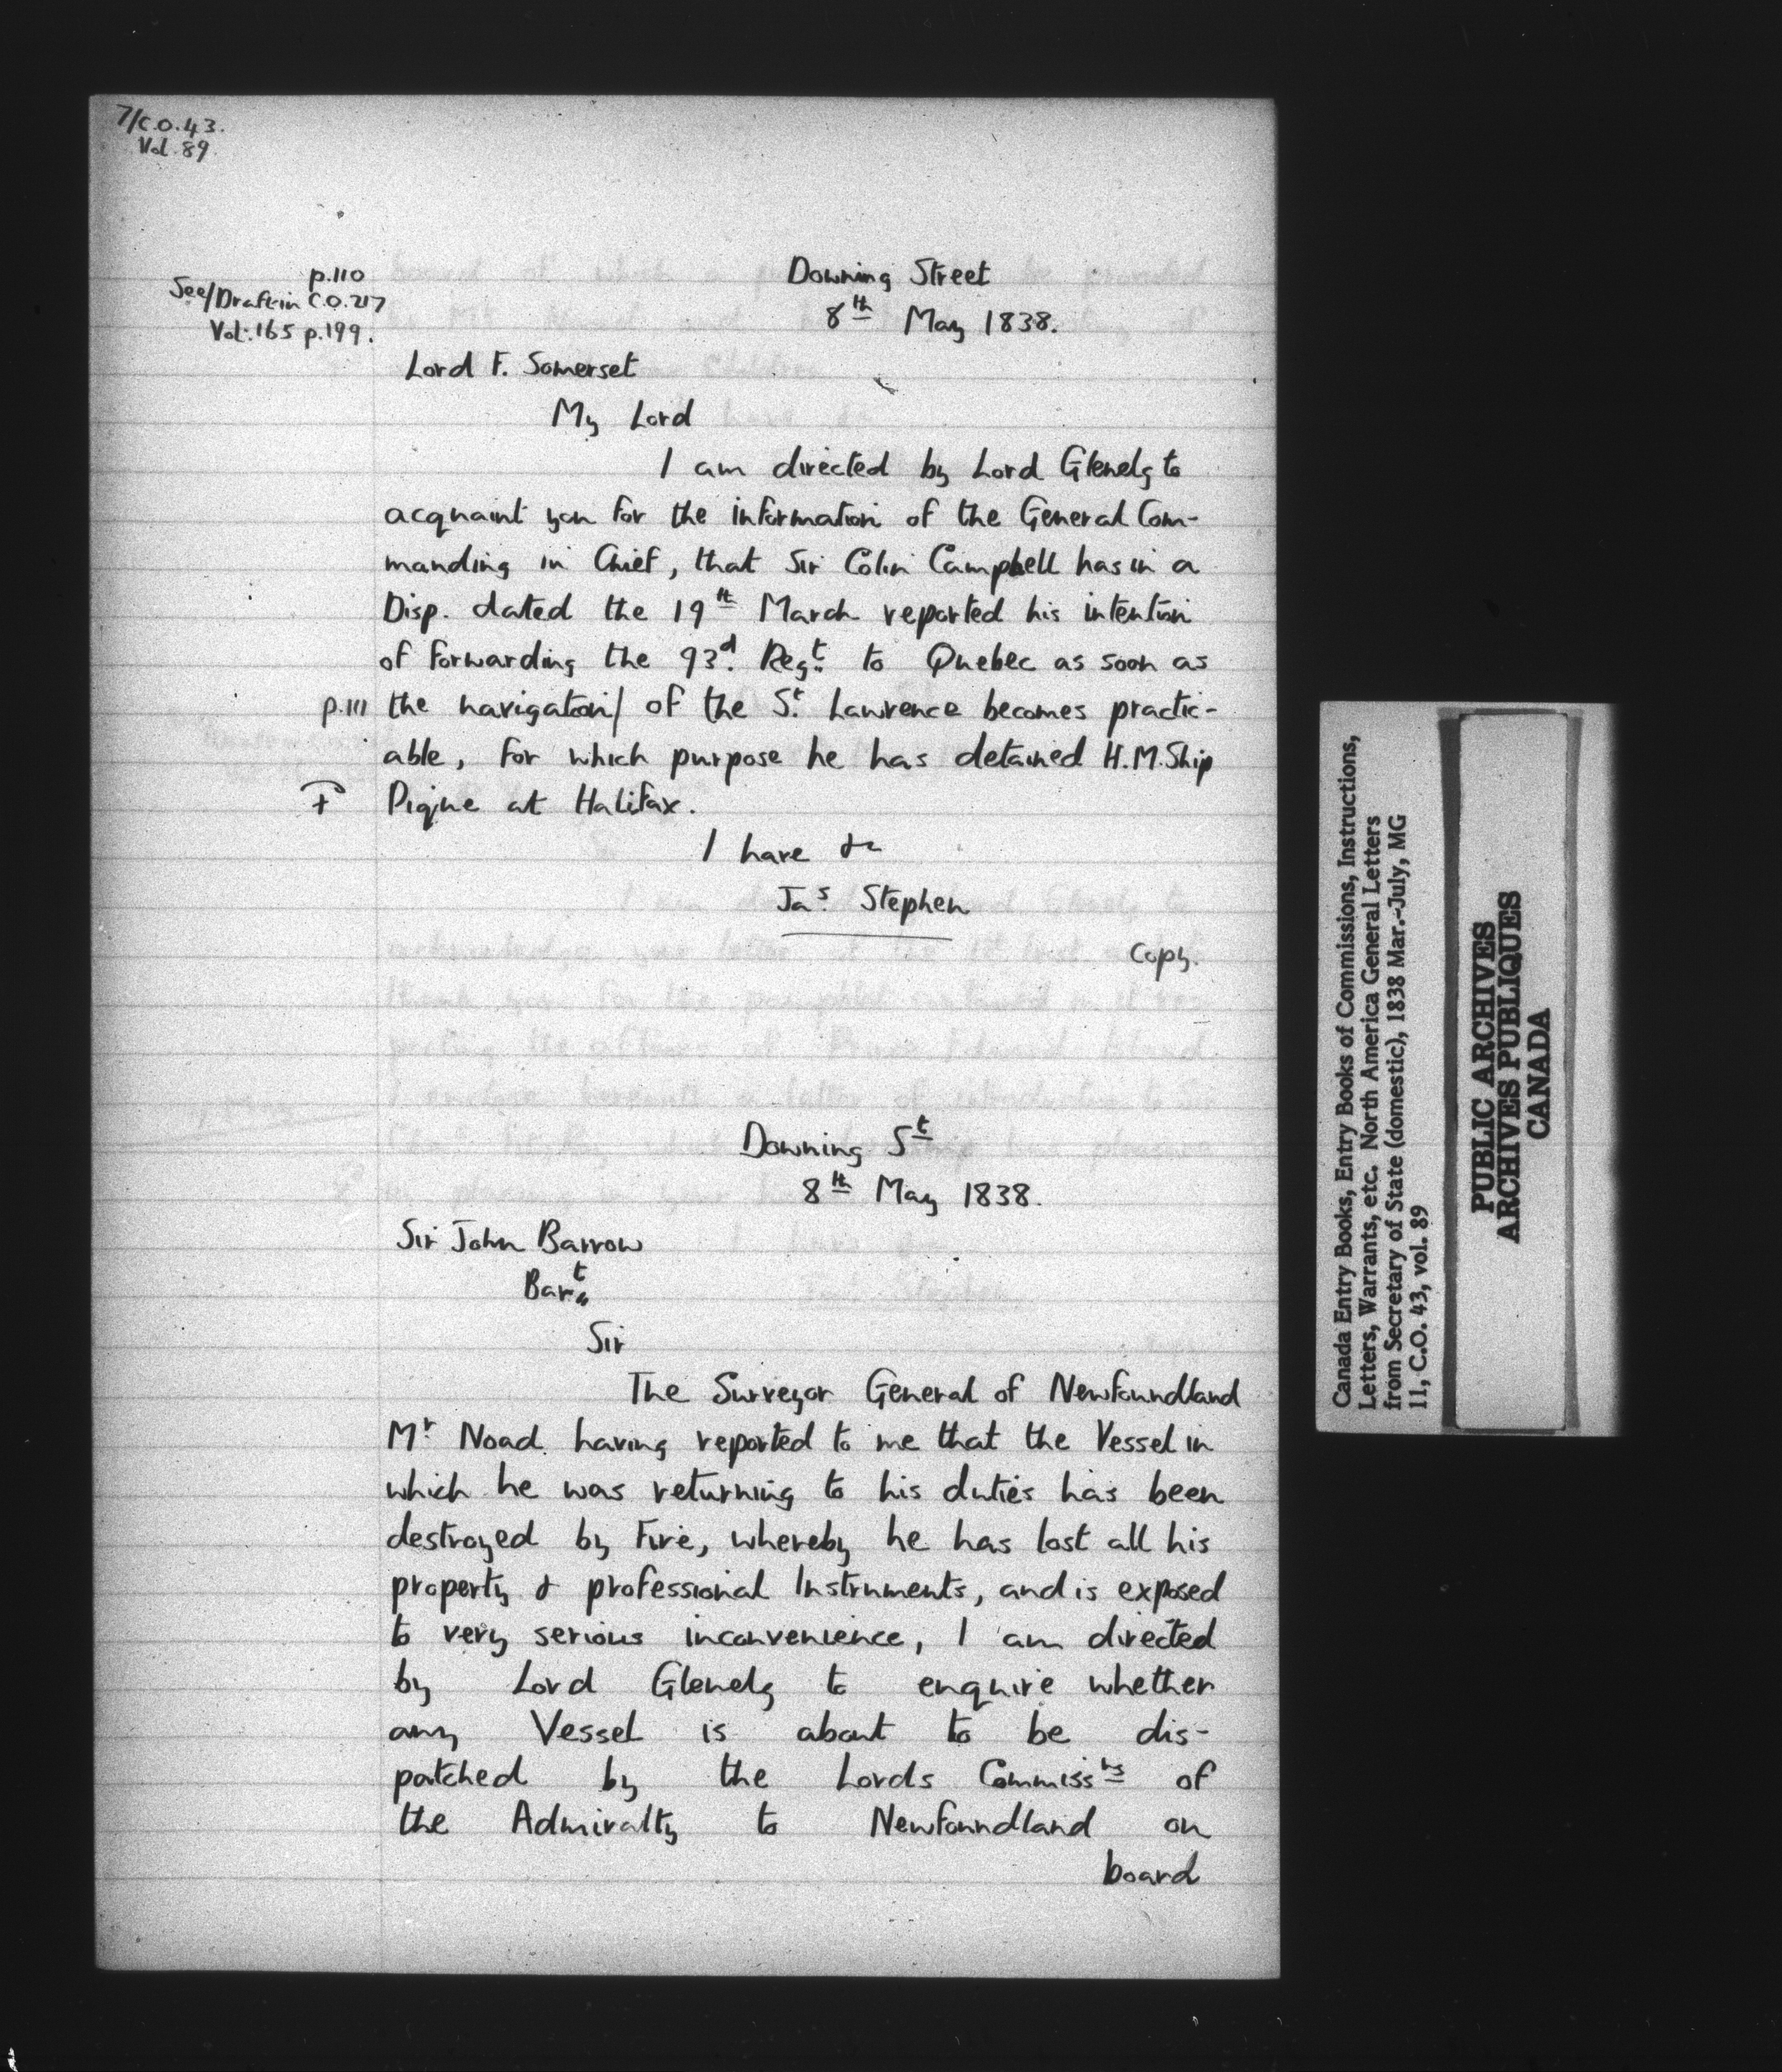 7/C.O.43.
Vol. 89.
p.110
See/Draft in C.O.217
Vol: 165 p.199.
Downing Street
8th May 1838.
Lord F. Somerset
My Lord
I am directed by Lord Glenelg to
acquaint you for the information of the General Com-
manding in Chief, that Sir Colin Campbell has in a
Disp. dated the 19th March reported his intention
of forwarding the 93d. Regt. to Quebec as soon as
p.111 the navigation/ of the St. Lawrence becomes practic-
able, for which purpose he has detained H.M. Ship
Pique at Halifax.
I have &c
Jas. Stephen
Copy.
Downing St
8th May 1838.
Sir John Barrow
Bart.
Sir
The Surveyor General of Newfoundland
Mr. Noad having reported to me that the Vessel in
which he was returning to his duties has been
destroyed by Fire, whereby he has lost all his
property & professional Instruments, and is exposed
to very serious inconvenience, I am directed
by Lord Glenelg to enquire whether
any Vessel is about to be dis-
patched by the Lords Commissrs of
the Admiralty to Newfoundland on
board
Canada Entry Books, Entry Books of Commissions, Instructions,
Letters, Warrants, etc. North America General Letters
from Secretary of State (domestic), 1838 Mar.-July, MG
11, C.O. 43, vol. 89
PUBLIC ARCHIVES
ARCHIVES PUBLIQUES
CANADA